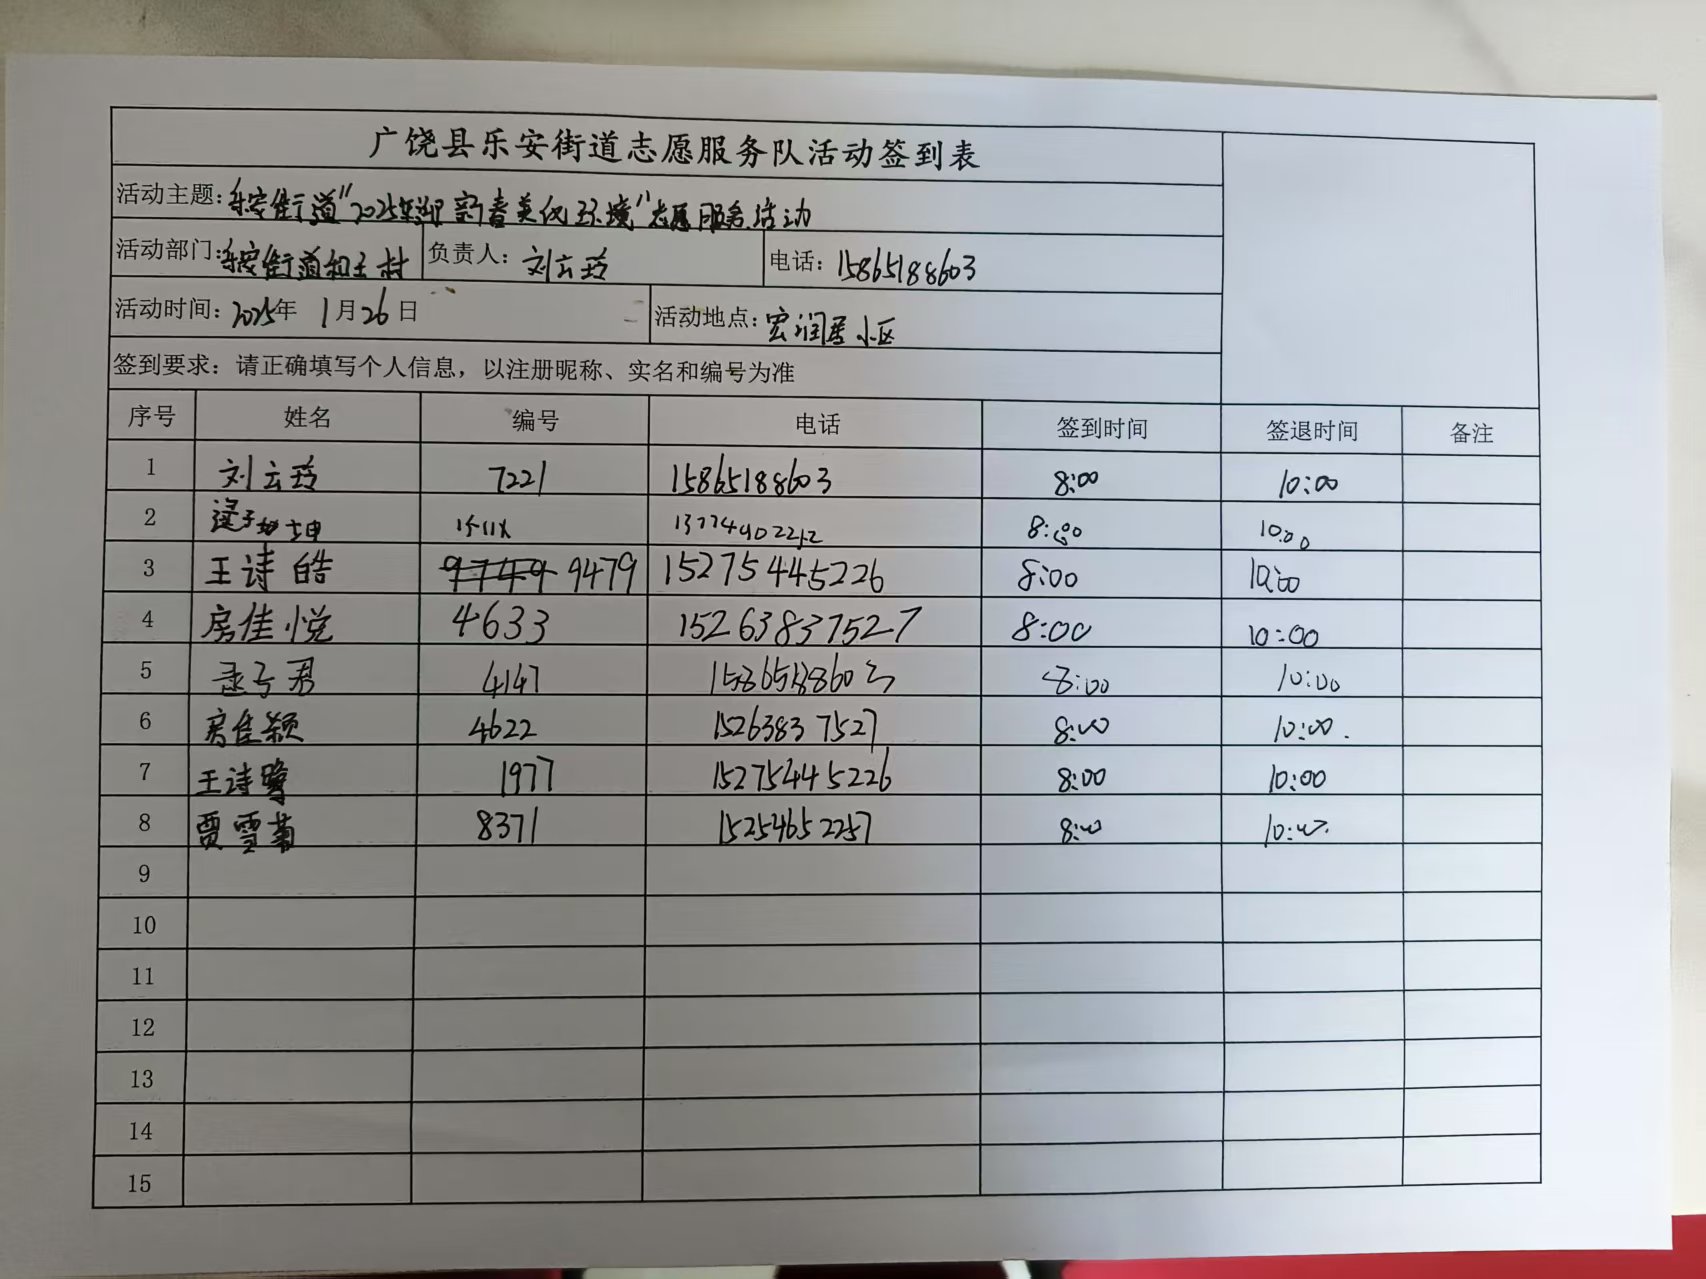 广饶县乐安街道志愿服务队活动签到表
活动主题：乐安街道"2025年迎新春美化环境"志愿服务活动
活动部门：乐安街道和王村 负责人：刘云玲 电话：15865188603
活动时间：2025年 1月26日 活动地点：宏润居小区
签到要求：请正确填写个人信息，以注册昵称、实名和编号为准
序号 姓名 编号 电话 签到时间 签退时间 备注
1 刘云玲 7221 15865188603 8:00 10:00
2 8:00 10:00
3 王诗皓 9479 15275445226 8:00 10:00
4 房佳悦 4633 15263837527 8:00 10:00
5 4147 15865188603 8:00 10:00
6 房佳颖 4622 15263837527 8:00 10:00.
7 王诗鹭 1977 15275445226 8:00 10:00
8 贾雪菊 8371 15254652257 8:00 10:00.
9
10
11
12
13
14
15